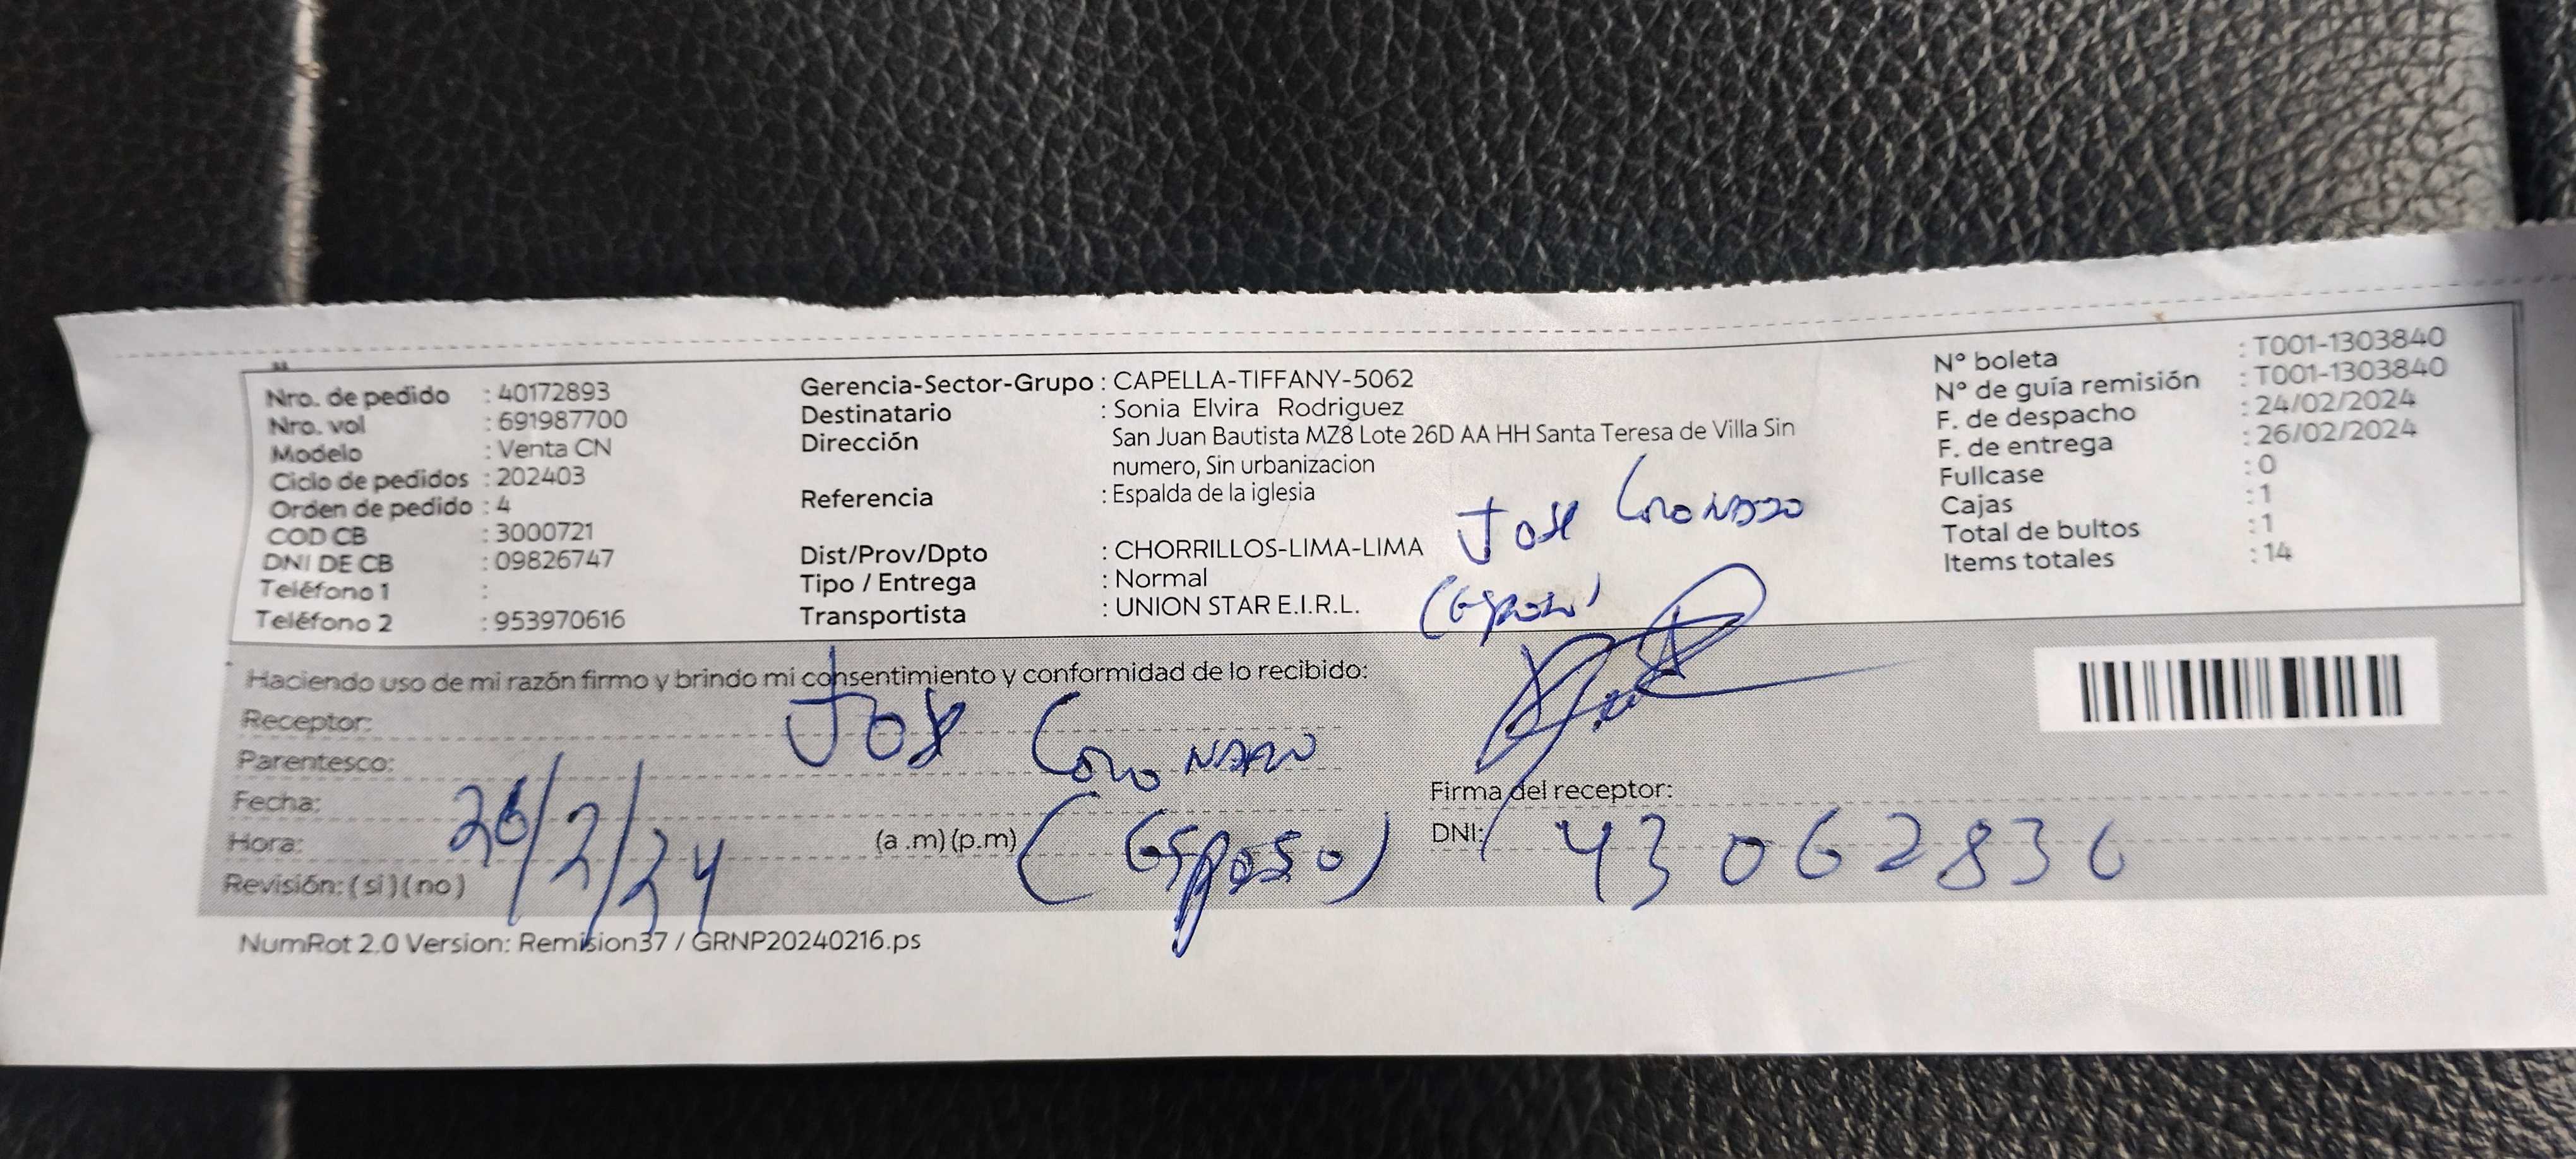 Nro. de pedido : 40172893
Nro. vol : 691987700
Modelo : Venta CN
Ciclo de pedidos : 202403
Orden de pedido : 4
COD CB : 3000721
DNI DE CB : 09826747
Teléfono 1 :
Teléfono 2 : 953970616
Gerencia-Sector-Grupo : CAPELLA-TIFFANY-5062
Destinatario : Sonia Elvira Rodriguez
Dirección San Juan Bautista MZ8 Lote 26D AA HH Santa Teresa de Villa Sin
numero, Sin urbanizacion
Referencia : Espalda de la iglesia
Dist/Prov/Dpto : CHORRILLOS-LIMA-LIMA
Tipo / Entrega : Normal
Transportista : UNION STAR E.I.R.L.
Jose Coronado
(Esposo)
N° boleta : T001-1303840
N° de guía remisión : T001-1303840
F. de despacho : 24/02/2024
F. de entrega : 26/02/2024
Fullcase : 0
Cajas : 1
Total de bultos : 1
Items totales : 14
Haciendo uso de mi razón firmo y brindo mi consentimiento y conformidad de lo recibido:
Receptor: Jose Coronado
Parentesco:
Fecha: 26/2/24
Hora: (a .m) (p.m) (Esposo)
Revisión: ( si ) ( no )
Firma del receptor:
DNI: 43062836
NumRot 2.0 Version: Remision37 / GRNP20240216.ps